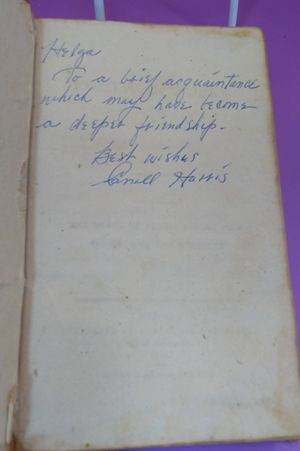 Helga
To a brief acquaintance
which may have become
a deeper friendship.
Best wishes
Harris